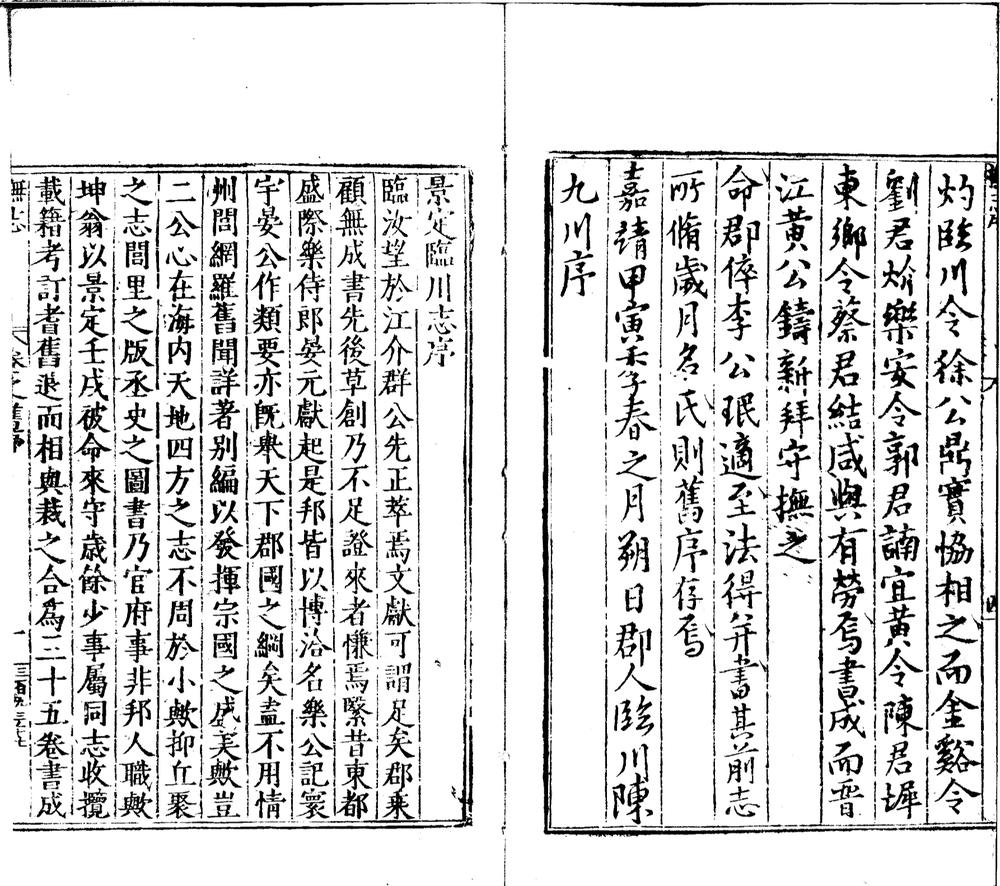 灼臨川令徐公鼎實恊相之而金谿令
劉君炌樂安令郭君諵宜黃令陳君墀
東鄉令蔡君結咸與有勞焉書成而晋
江黃公鑄新拜守撫之
命郡倅李公珉適至法得并書其前志
所脩歲月名氏則舊序存焉
嘉靖甲寅季春之月朔日郡人臨川陳
九川序
景定臨川志序
臨汝望於江介群公先正萃焉文獻可謂足矣郡乗
顧無成書先後草創乃不足證來者慊焉緊昔東都
盛際樂侍郎晏元獻起是邦皆以博洽名樂公記寰
宇晏公作類要亦旣舉天下郡國之綱矣盍不用情
州閭網羅舊聞詳著別編以發揮宗國之盛美歟豈
二公心在海内天地四方之志不周於小歟抑丘聚
之志閭里之版丞史之圖書乃官府事非邦人職歟
坤翁以景定壬戌被命來守歲餘少事屬同志收攬
載籍考訂耆舊退而相與裁之合為三十五卷書成
撫志